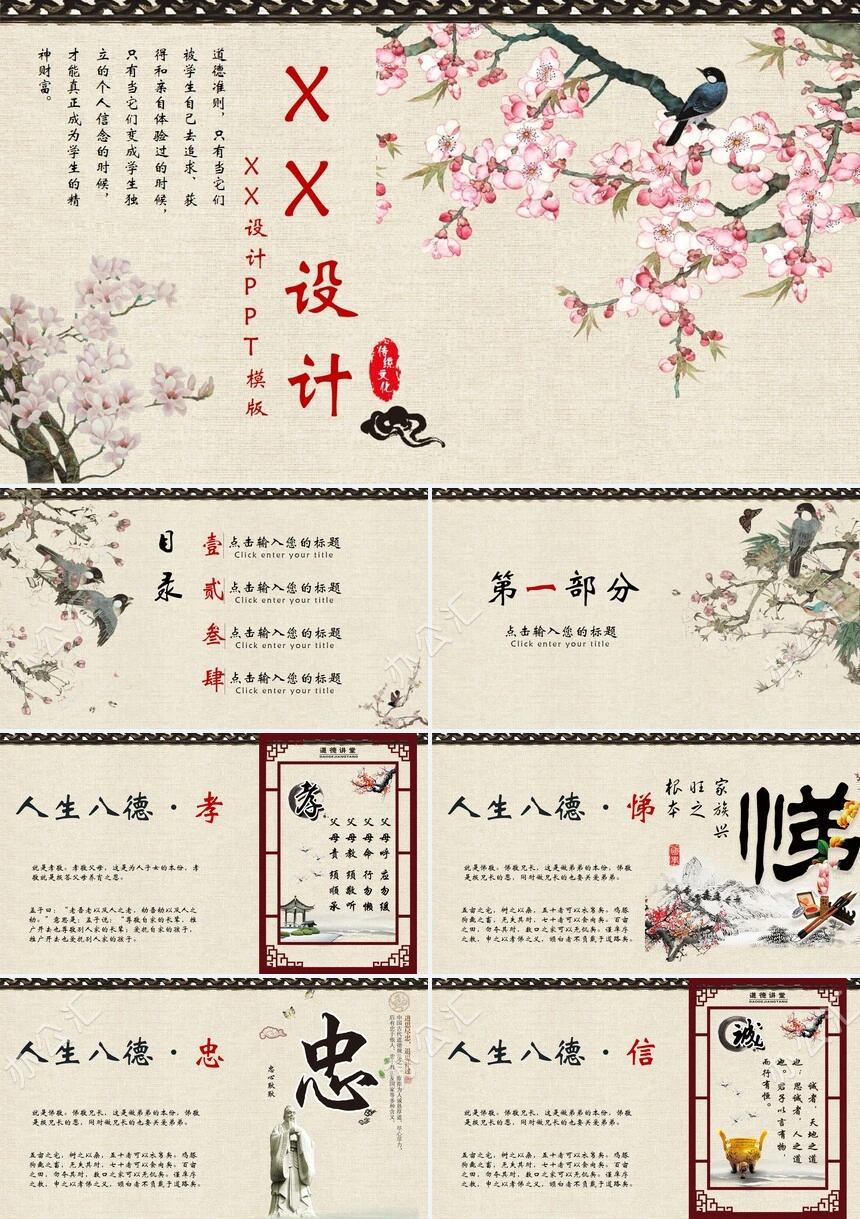 道德准则，只有当它们
被学生自己去追求、获
得和亲自体验过的时候，
只有当它们变成学生独
立的个人信念的时候，
才能真正成为学生的精
神财富。
XX设计
XX设计PPT模版
传统文化
目录
壹 点击输入您的标题
Click enter your title
贰 点击输入您的标题
Click enter your title
叁 点击输入您的标题
Click enter your title
肆 点击输入您的标题
Click enter your title
办公汇
第一部分
点击输入您的标题
Click enter your title
人生八德·孝
就是孝敬。孝敬父母，这是为人子女的本份，孝
敬就是报答父母养育之恩。
孟子曰：“老吾老以及人之老，幼吾幼以及人之
幼。”意思是：孟子说：“尊敬自家的长辈，推
广开去也尊敬别人家的长辈；爱抚自家的孩子，
推广开去也爱抚别人家的孩子。
道德讲堂
DAODEJIANGTANG
孝
父母呼 应勿缓
父母命 行勿懒
父母教 须敬听
父母责 须顺承
人生八德·悌
就是悌敬。悌敬兄长，这是做弟弟的本份，悌敬
是报兄长的恩，同时做兄长的也要关爱弟弟。
五亩之宅，树之以桑，五十者可以衣帛矣。鸡豚
狗彘之畜，无失其时，七十者可以食肉矣。百亩
之田，勿夺其时，数口之家可以无饥矣。谨庠序
之教，申之以孝悌之义，颁白者不负戴于道路矣。
家族兴
旺之
根本
悌
人生八德·忠
就是悌敬。悌敬兄长，这是做弟弟的本份，悌敬
是报兄长的恩，同时做兄长的也要关爱弟弟。
五亩之宅，树之以桑，五十者可以衣帛矣。鸡豚
狗彘之畜，无失其时，七十者可以食肉矣。百亩
之田，勿夺其时，数口之家可以无饥矣。谨庠序
之教，申之以孝悌之义，颁白者不负戴于道路矣。
忠心耿耿
忠
人生八德·信
就是悌敬。悌敬兄长，这是做弟弟的本份，悌敬
是报兄长的恩，同时做兄长的也要关爱弟弟。
五亩之宅，树之以桑，五十者可以衣帛矣。鸡豚
狗彘之畜，无失其时，七十者可以食肉矣。百亩
之田，勿夺其时，数口之家可以无饥矣。谨庠序
之教，申之以孝悌之义，颁白者不负戴于道路矣。
道德讲堂
DAODEJIANGTANG
诚
诚者，天地之道
也；思诚者，人之道
也。君子以言有物，
而行有恒。